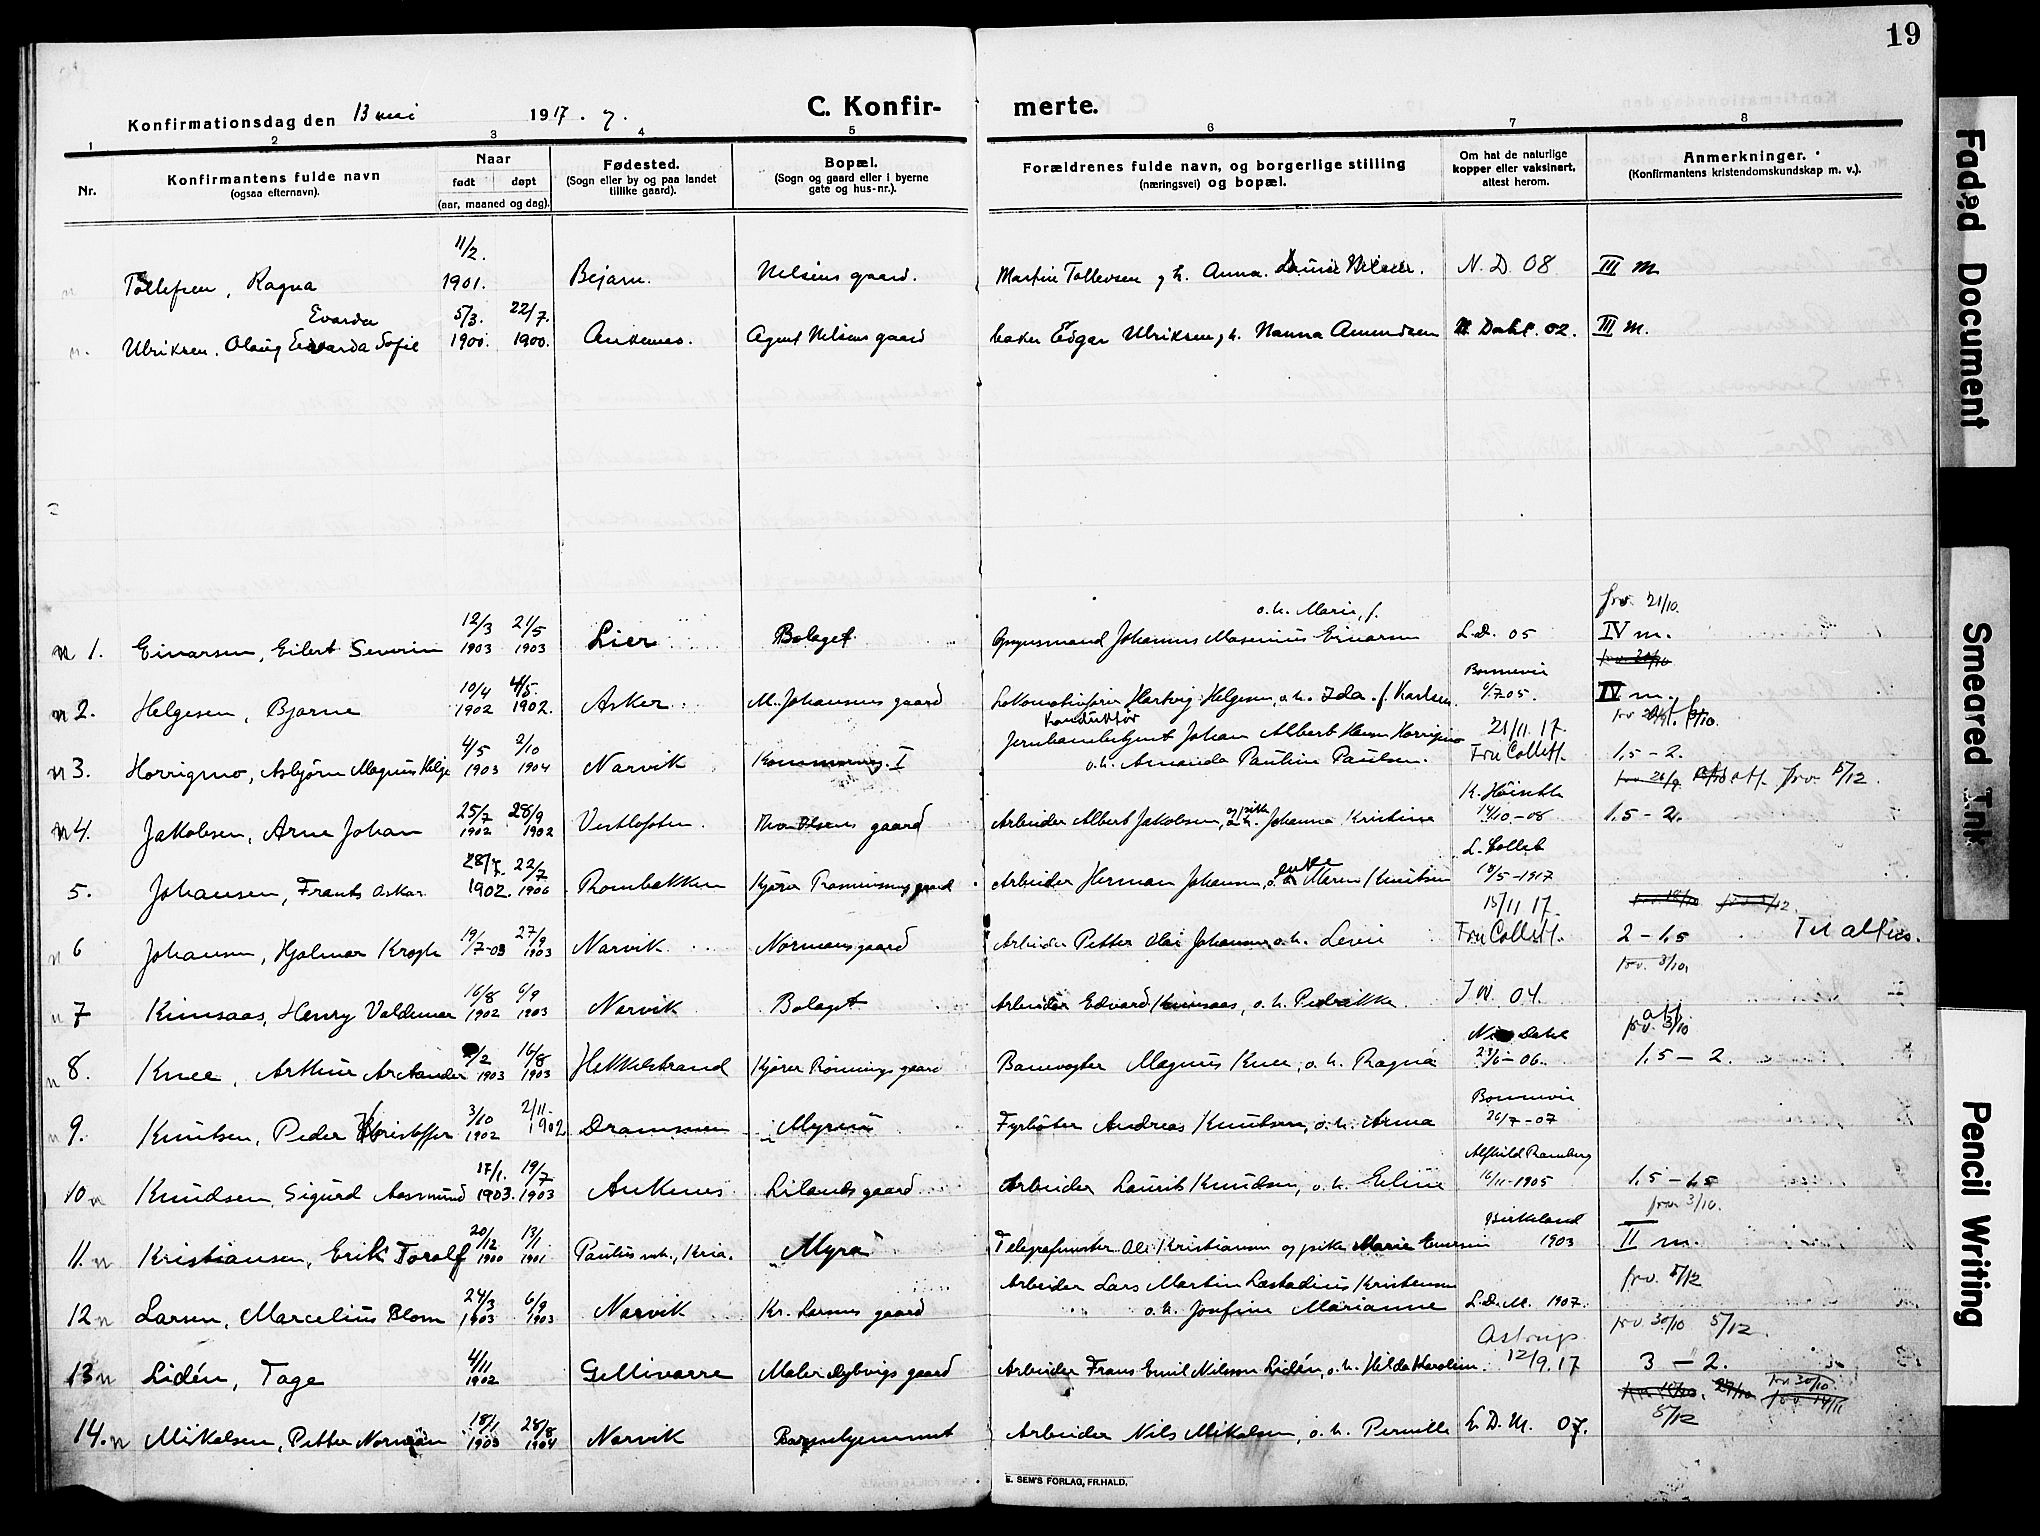 19
Konfirmationsdag den 13 mai 1917.
C. Konfir- merte.
1 2 3 4 5 6 7 8
Nr.
Konfirmantens fulde navn
(ogsaa efternavn).
Naar
født døpt
(aar, maaned og dag).
Fødested.
(Sogn eller by og paa landet
tillike gaard).
Bopæl.
(Sogn og gaard eller i byerne
gate og hus-nr.).
Forældrenes fulde navn, og borgerlige stilling
(næringsvei) og bopæl.
Om hat de naturlige
kopper eller vaksinert,
attest herom.
Anmerkninger.
(Konfirmantens kristendomskundskap m. v.).
n Tollefsen, Ragna 11/2. 1901. Bejarn. Nilsens gaard. Martin Tollevsen g h. Anna N. D. 08 III m
Evarda
n. Ulriksen. Olaug Sofie 5/3. 1900. 22/7. 1900. Ankenes. Agent Nilsens gaard baker Edgar Ulriksen, h. Nanna Amundsen Dahl. 02. III m.
o. h. Marie, f. frv. 21/10.
n 1. Einarsen, Eilert Severin 12/3 1903 21/5 1903 Lier Bolaget Johannes Masenius Einarsen L.D. 05 IV m.
n 2. Helgesen, Bjarne 10/4 1902 4/5. 1902. Asker M. Johansens gaard Hartvig Helgesen, o. h. Ida f. Karlsen. Bonnevie 6/7 05. IV m.
Konduktør
n 3. Horrigmo, Asbjørn Magnus Helge 4/5 1903 2/10 1904 Narvik I Johan Albert Horrigmo 21/11 17. Fru Collett. 1,5 - 2.
o. h. Amanda Pauline Paulsen. frv. 5/12.
n 4. Jakobsen, Arne Johan 25/7 1902 28/9 1902 Vestlofoten Olsens gaard Arbeider Albert Jakobsen, og pike Johanna Kristine 14/10-08 1,5 - 2.
5. Johansen, Frants Oskar 28/7. 1902. 22/7 1906 Rombakken Kjører gaard Arbeider Herman Johansen, enke Maren Knutsen L. Collett 18/5-1917
n 6 Johansen, Hjalmar Krogh 19/7-03 27/9 1903 Narvik Normans gaard Arbeider Petter Olai Johansen o. h. Levie 15/11 17. Fru Collett. 2 - 1,5 Til alters.
frv. 3/10,
n 7 Kimsaas, Henry Valdemar 16/8 1902 6/9 1903 Narvik Bolaget Arbeider Edvard Kimsaas, o. h. Petrikke. J.W. 04.
n 8. Knee, Arthur Arctander /2 1903 16/8 1903 Hekkelstrand Kjører Rønnings gaard Banevogter Magnus Knee, o. h. Ragna Dahl 23/6-06. att frv. 3/10 1,5 - 2.
n 9. Knutsen, Peder Kristoffer 3/10 1902 2/11- 1902 Drammen Myren Fyrbøter Andreas Knutsen, o. h. Anna Bonnevie 26/7-07
10 n Knudsen, Sigurd Aasmund 17/1. 1903. 19/7 1903 Ankenes Lilands gaard Arbeider Laurits Knudsen, o. h. Eline Alfhild Ramberg 16/11-1905 1,5 - 1,5
frv 3/10.
11. n Kristiansen, Erik Toralf 20/12 1900 13/1 1901 Paulus mh., Kria. Myra Telegrafmester Ole Kristiansen og pike Marie Birkeland 1903 II m.
Arbeider Lars Martin Læstadius Kristensen frv. 5/12
12 n Larsen, Marcelius Blom 24/3 1903 6/9 1903 Narvik Kr. Larsens gaard o. h. Josefine Marianne L.D.M. 1907.
frv. 30/10 5/12.
13 n Lidén, Tage 4/11 1902 Gellivarre Maler Dybvigs gaard Arbeider Frans Emil Nilsson Lidén, o. h. Hilda Karolin. Astrup 12/9.17 3 - 2.
14. n Mikalsen, Petter Norman 18/1 1903 28/8 1904 Narvik Barnehjemmet Arbeider Nils Mikalsen, o. h. Pernille L.D.M. 07. 5/12
E. SEM'S FORLAG, FR.HALD.
Faded Document
Smeared Ink
Pencil Writing